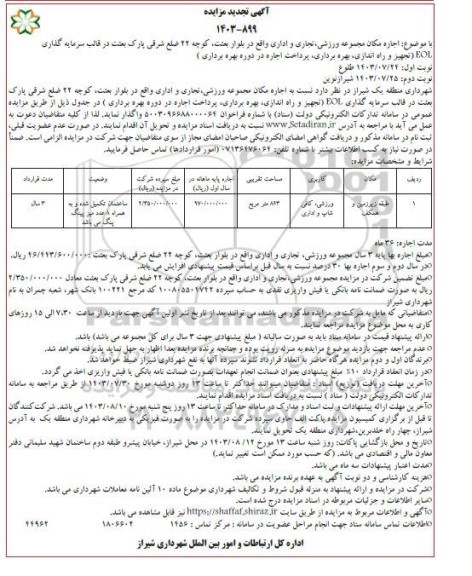 آگهی تجدید مزایده
۱۴۰۳-۸۹۹
با موضوع: اجاره مکان مجموعه ورزشی،تجاری و اداری واقع در بلوار بعثت، کوچه ۲۲ ضلع شرقی پارک بعثت در قالب سرمایه گذاری
EOL (تجهیز و راه اندازی، بهره برداری، پرداخت اجاره در دوره بهره برداری )
نوبت اول: ۱۴۰۳/۰۷/۲۴ طلوع
نوبت دوم: ۱۴۰۳/۰۷/۲۵ شیرازنوین
شهرداری منطقه یک شیراز در نظر دارد نسبت به اجاره مکان مجموعه ورزشی،تجاری و اداری واقع در بلوار بعثت، کوچه ۲۲ ضلع شرقی پارک
بعثت در قالب سرمایه گذاری EOL (تجهیز و راه اندازی، بهره برداری، پرداخت اجاره در دوره بهره برداری ) در جدول ذیل از طریق مزایده
عمومی در سامانه تدارکات الکترونیکی دولت (ستاد) با شماره فراخوان ۵۰۰۳۰۹۶۶۸۸۰۰۰۰۶۴ واگذار نماید. لذا از کلیه متقاضیان دعوت به
عمل می آید با مراجعه به آدرس www.Setadiran.ir نسبت به دریافت اسناد مزایده و تحویل آن اقدام نمایند. در صورت عدم عضویت قبلی،
ثبت نام در سامانه مذکور و دریافت گواهی امضای الکترونیکی صاحبان امضای مجاز از سوی متقاضیان جهت شرکت در مزایده الزامی است. ضمناً
در صورت نیاز به کسب اطلاعات بیشتر با شماره تلفن: ۰۷۱۳۶۴۷۶۰۶۴ (امور قراردادها) تماس حاصل فرمایید.
شرایط و مشخصات مزایده:
ردیف مکان کاربری مساحت تقریبی اجاره پایه ماهانه در سال اول (ریال) مبلغ سپرده شرکت در مزایده (ریال) وضعیت مدت قرارداد
۱ طبقه زیرزمین و همکف ورزشی، کافی شاپ و اداری ۸۲۳ متر مربع ۹۷۰/۰۰۰/۰۰۰ ۲/۳۵۰/۰۰۰/۰۰۰ ساختمان تکمیل شده و به همراه ۸ عدد میز پینگ پنگ می باشد ۳ سال
مدت اجاره: ۳۶ ماه
مبلغ اجاره بها پایه ۳ سال مجموعه ورزشی، تجاری و اداری واقع در بلوار بعثت، کوچه ۲۲ ضلع شرقی پارک بعثت: ۴۶/۴۴۳/۶۰۰/۰۰۰ ریال.
در سال دوم و سوم اجاره بها ۳۰ درصد نسبت به سال قبل براساس قیمت پیشنهادی افزایش می یابد.
مبلغ تضمین شرکت در مزایده مجموعه ورزشی،تجاری و اداری واقع در بلوار بعثت، کوچه ۲۲ ضلع شرقی پارک بعثت معادل ۲/۳۵۰/۰۰۰/۰۰۰
ریال به صورت ضمانت نامه بانکی یا فیش واریزی نقدی به حساب سپرده ۱۰۰۸۰۵۵۰۱۷۲۲ کد مرجع ۱۰۰۲۲۱ بانک شهر، شعبه چمران به نام
شهرداری شیراز
متقاضیانی که مایل به شرکت در مزایده مذکور می باشند، می توانند بعد از تاریخ نشر اولین آگهی جهت بازدید از ساعت ۷.۳۰ الی ۱۵ روزهای
کاری به محل موضوع مزایده مراجعه نمایند.
ارائه پیشنهاد قیمت در سامانه ستاد باید به صورت سالیانه ( مبلغ پیشنهادی جهت ۳ سال برای کل مجموعه می باشد) باشد.
عدم مراجعه جهت بازدید موضوع مزایده به منزله رویت بوده و چنانچه برنده مزایده بعداً اظهار بی‌اطلاعی نماید پذیرفته نخواهد شد.
برندگان اول و دوم مزایده هرگاه حاضر به انعقاد قرارداد نشوند سپرده آنها به نفع شهرداری شیراز ضبط خواهد شد.
در زمان انعقاد قرارداد ۱۰٪ مبلغ پیشنهادی بعنوان ضمانت انجام تعهدات بصورت ضمانت نامه بانکی یا فیش واریزی اخذ می گردد.
آخرین مهلت دریافت و توزیع اسناد: متقاضیان میتوانند حداکثر تا ساعت ۱۳ روز دوشنبه مورخ ۱۴۰۳/۰۷/۳۰ از طریق مراجعه به سامانه
تدارکات الکترونیکی دولت ( ستاد ) نسبت به دریافت اسناد مزایده اقدام نمایند.
آخرین مهلت ارائه پیشنهادات و ثبت اسناد و مدارک در سامانه حداکثر تا ساعت ۱۳ روز پنج شنبه مورخ ۱۴۰۳/۰۸/۱۰ می باشد. شرکت‌کنندگان
تا قبل از برگزاری کمیسیون مزایده پاکت الف حاوی سپرده شرکت در مزایده را به صورت فیزیکی به دبیرخانه شهرداری منطقه یک به آدرس
شیراز، چهار راه خلدبرین،شهرداری منطقه یک تحویل نمایند.
تاریخ و محل بازگشایی پاکات: روز شنبه ساعت ۱۳ مورخ ۱۴۰۳/۰۸/۱۲ در محل شیراز، خیابان پیشرو طبقه دوم ساختمان شهید سلیمانی دفتر
معاون مالی و اقتصادی می باشد. (که حسب مورد ممکن است تغییر نماید.)
مدت اعتبار پیشنهادات سه ماه می باشد.
هزینه کارشناسی و دو نوبت آگهی به عهده برنده مزایده می باشد.
شرکت در مزایده و ارائه پیشنهاد به منزله قبول شروط و تکالیف شهرداری موضوع ماده ۱۰ آئین نامه معاملات شهرداری می باشد.
سایر اطلاعات و جزئیات مربوطه در اسناد مزایده درج شده است.
آگهی و اطلاعات مربوط به مزایده از طریق سایت https://shaffaf.shiraz.ir نیز قابل مشاهده می باشد.
اطلاعات تماس سامانه ستاد جهت انجام مراحل عضویت در سامانه : مرکز تماس : ۱۴۵۶ ۱۸۰۶۶۰۲ ۴۴۹۶۲
اداره کل ارتباطات و امور بین الملل شهرداری شیراز